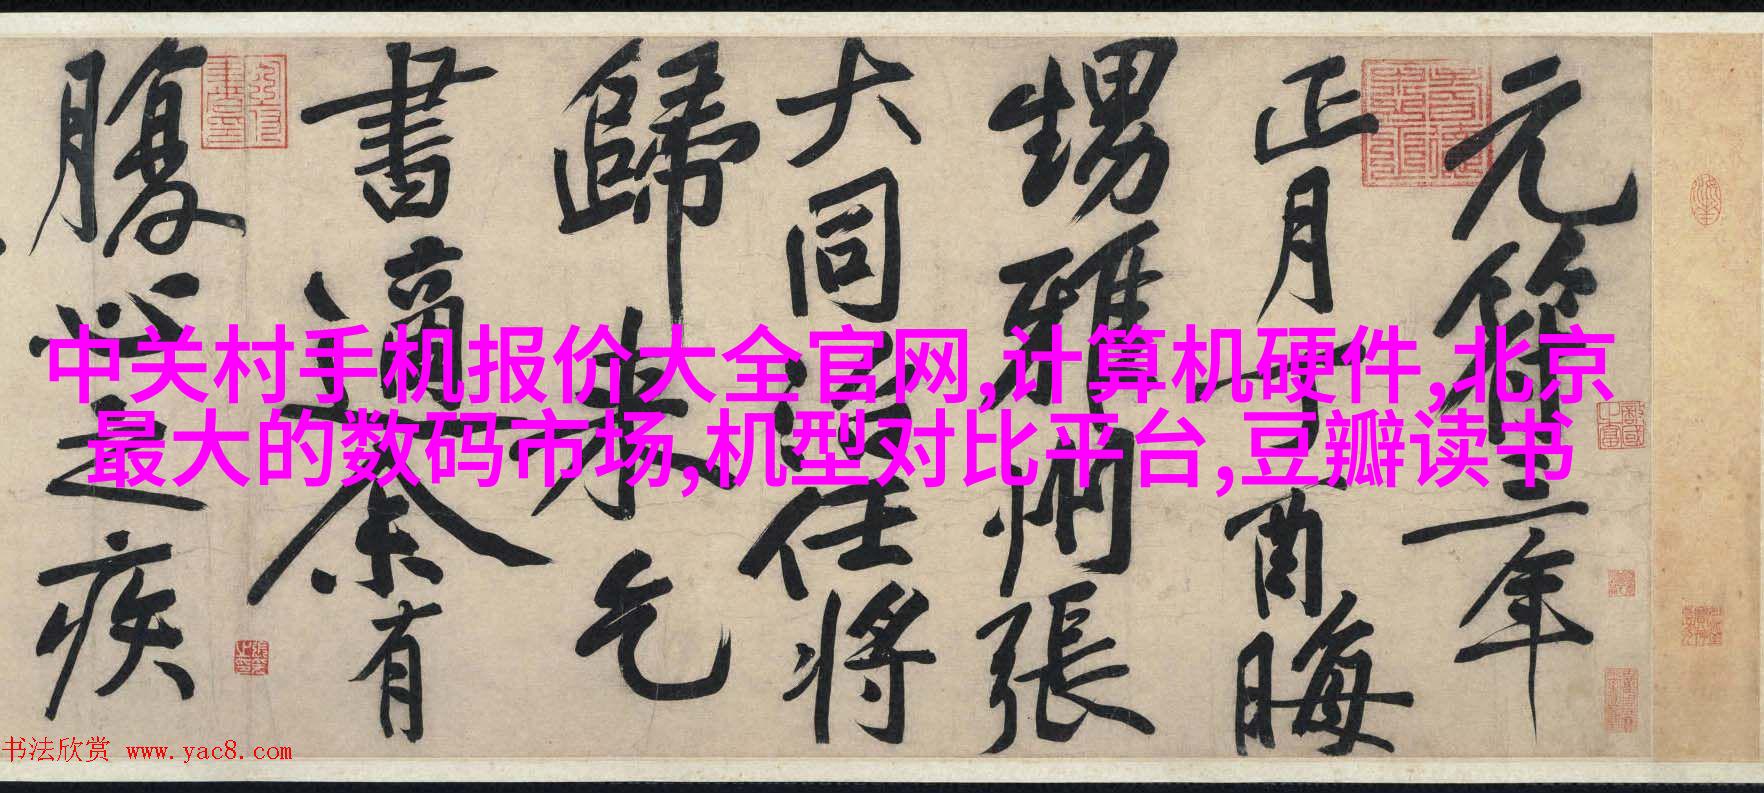 元符三年
正月丁酉晦
甥雅州張
大同治任將
歸來乞
書適余有
腹心之疾
中关村手机报价大全官网,计算机硬件,北京
最大的数码市场,机型对比平台,豆瓣读书
书法欣赏 www.yac8.com